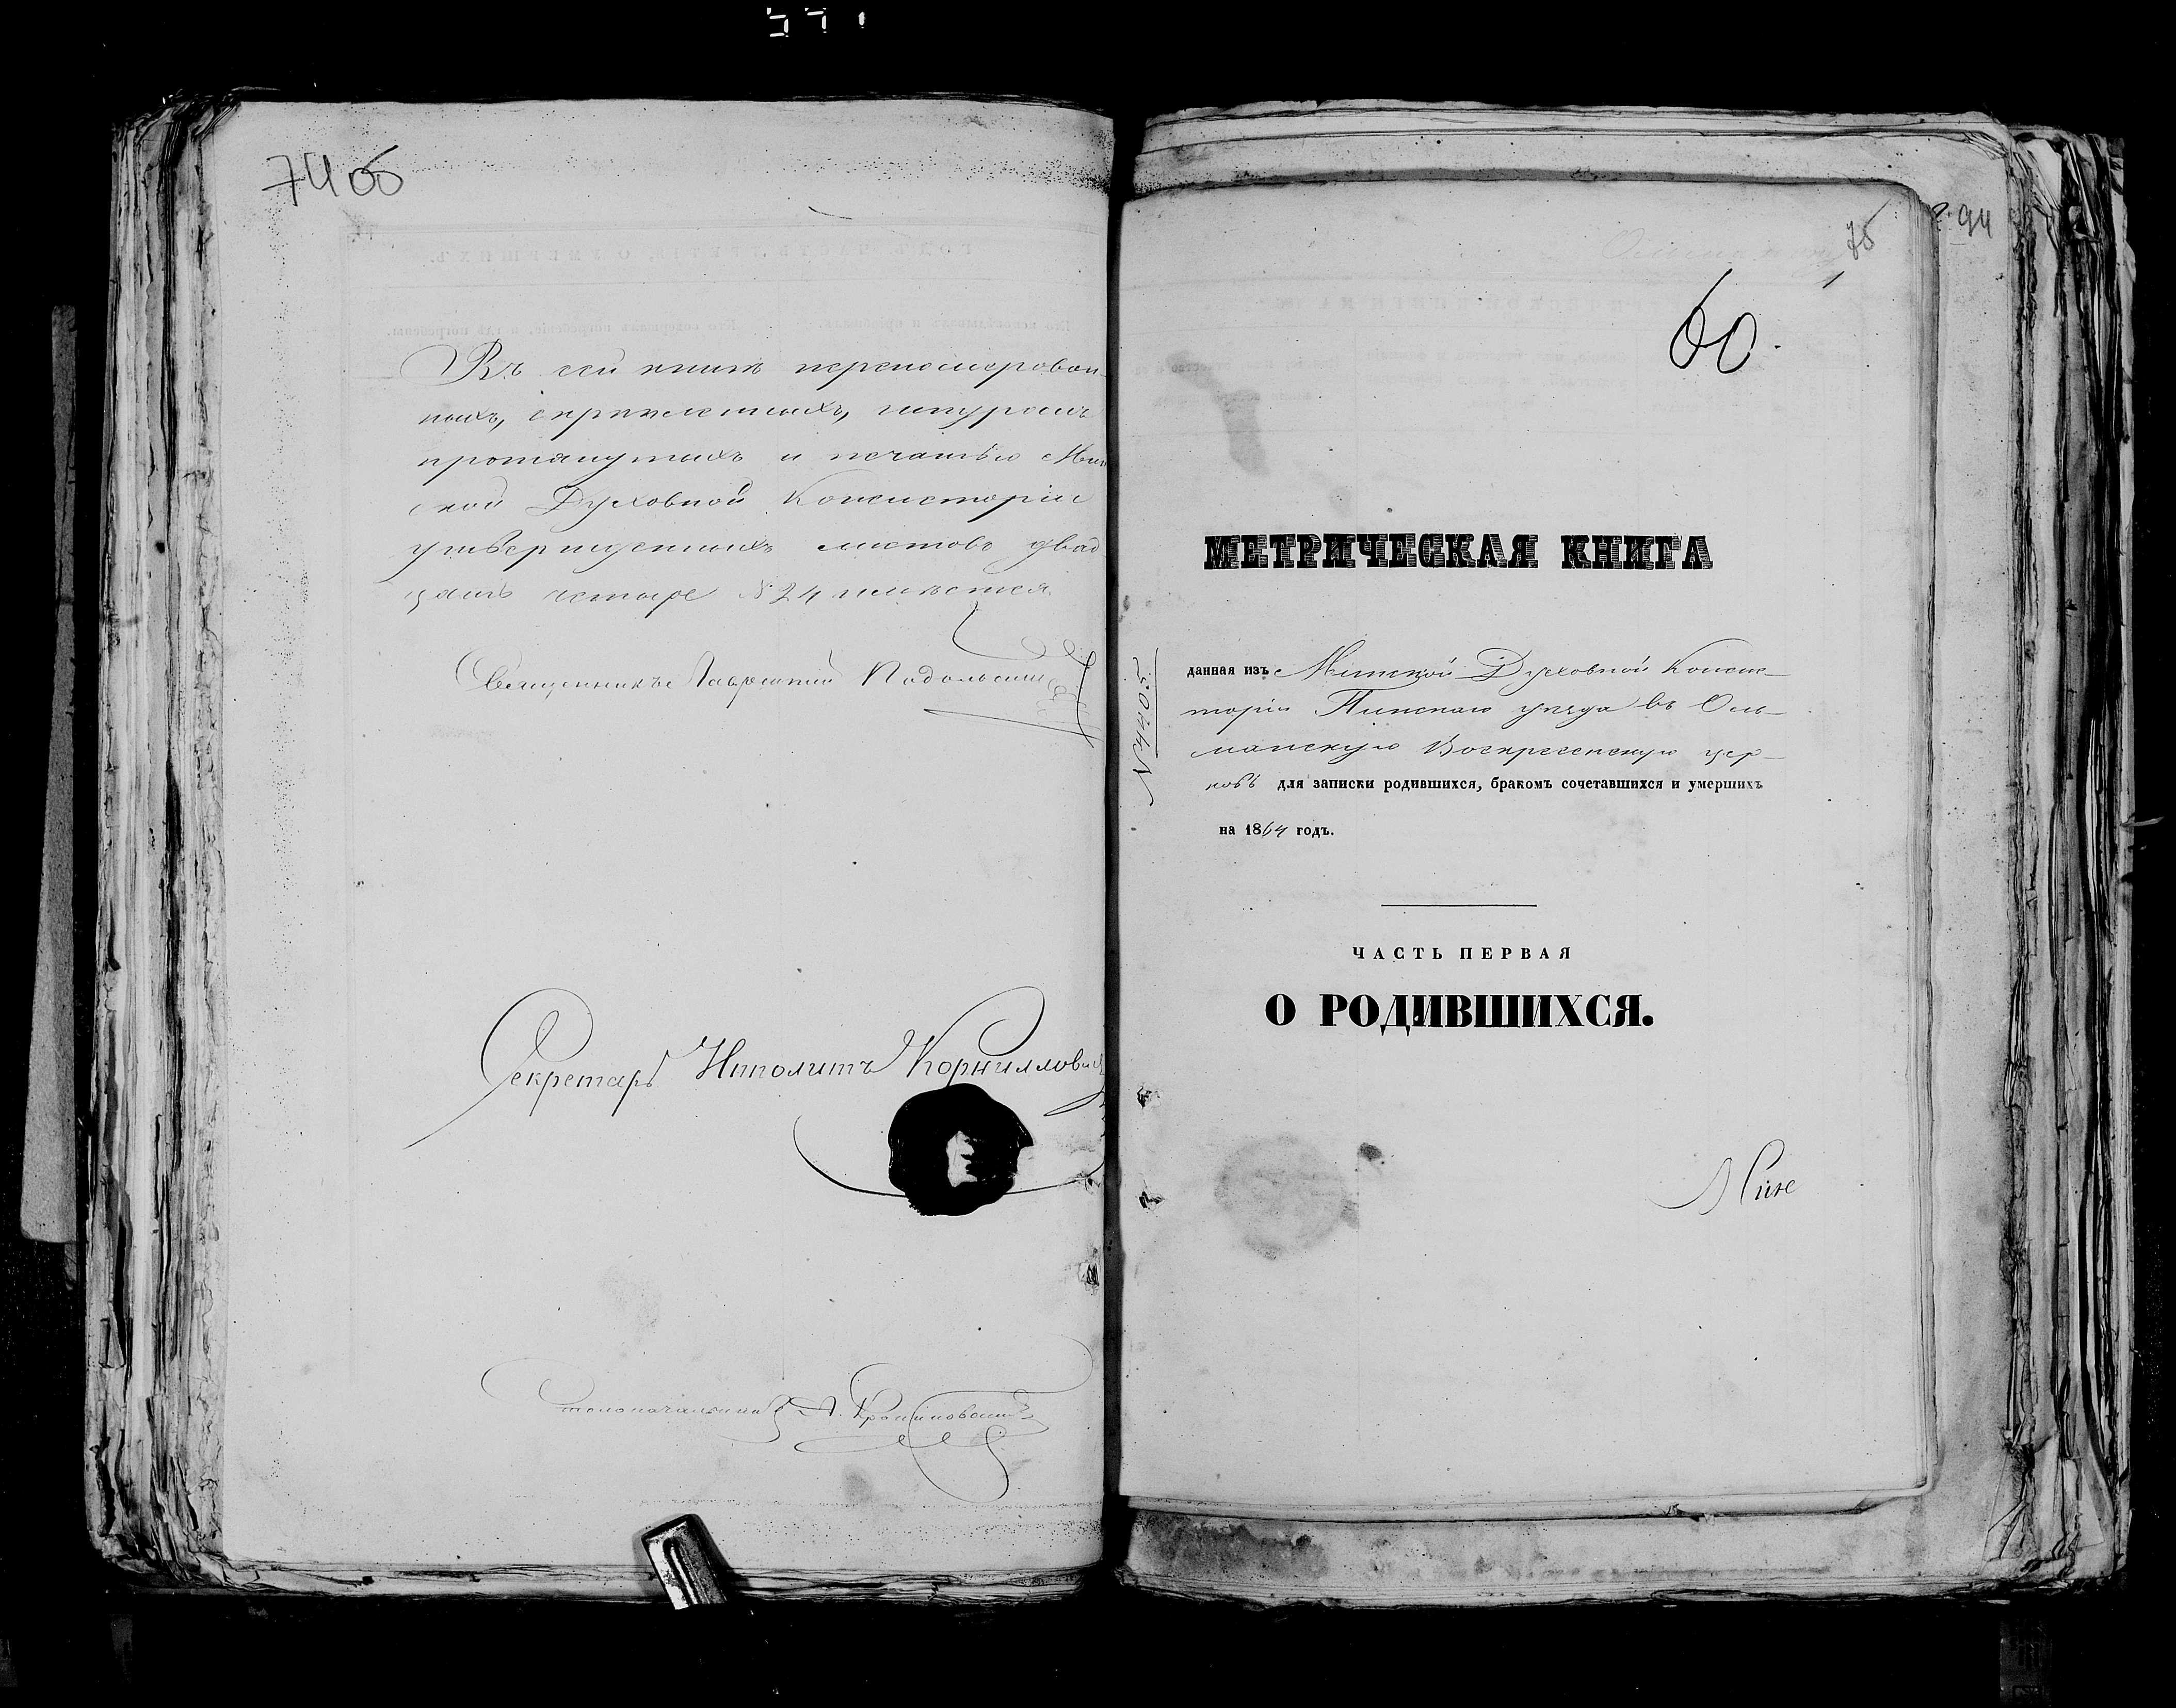 74об
Въ сей книгѣ перенумерован-
ныхъ, скрѣпленныхъ, шнуромъ
протянутыхъ и печатью Мин
ской Духовной Консисторіи
утвержденныхъ листовъ двад
цать четыре № 24 имѣется
Священникъ Лаврентій Подольскій
Секретарь Ипполитъ Корнилович
Столоначальникъ А.
94
75
1
60.
МЕТРИЧЕСКАЯ КНИГА
данная изъ Минской Духовной Консис-
торіи Пинскаго уѣзда въ Оль-
манскую Воскресенскую цер-
ковь для записки родившихся, бракомъ сочетавшихся и умершихъ
на 1864 годъ.
№ 4405
ЧАСТЬ ПЕРВАЯ
О РОДИВШИХСЯ.